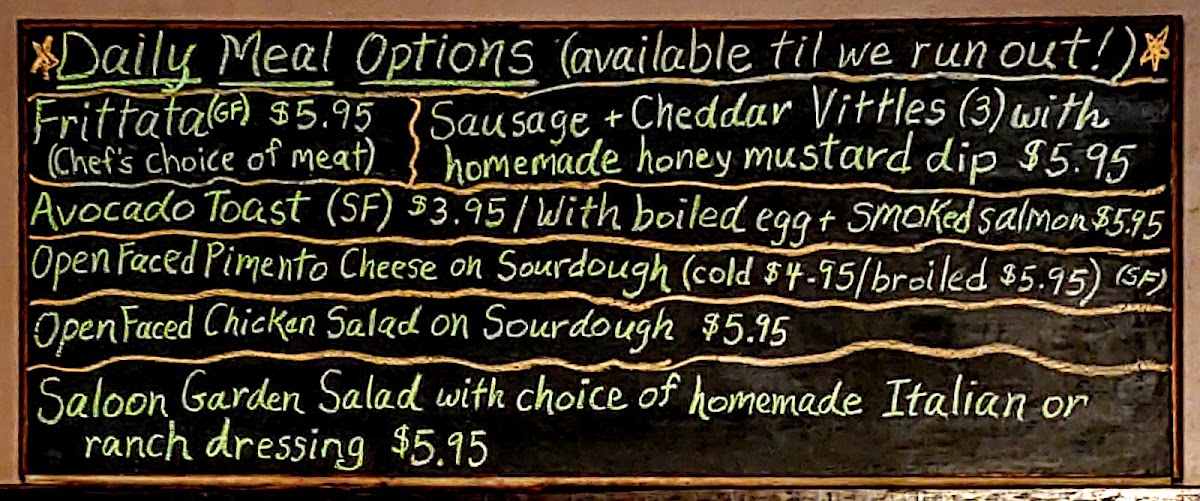 Daily Meal Options (available til we run out!)
Frittata (GF) $5.95
(Chef's choice of meat)
Sausage + Cheddar Vittles (3) with
homemade honey mustard dip $5.95
Avocado Toast (SF) $3.95 / With boiled egg + smoked salmon $5.95
Open Faced Pimento Cheese on Sourdough (cold $4.95/broiled $5.95) (SF)
Open Faced Chicken Salad on Sourdough $5.95
Saloon Garden Salad with choice of homemade Italian or
ranch dressing $5.95